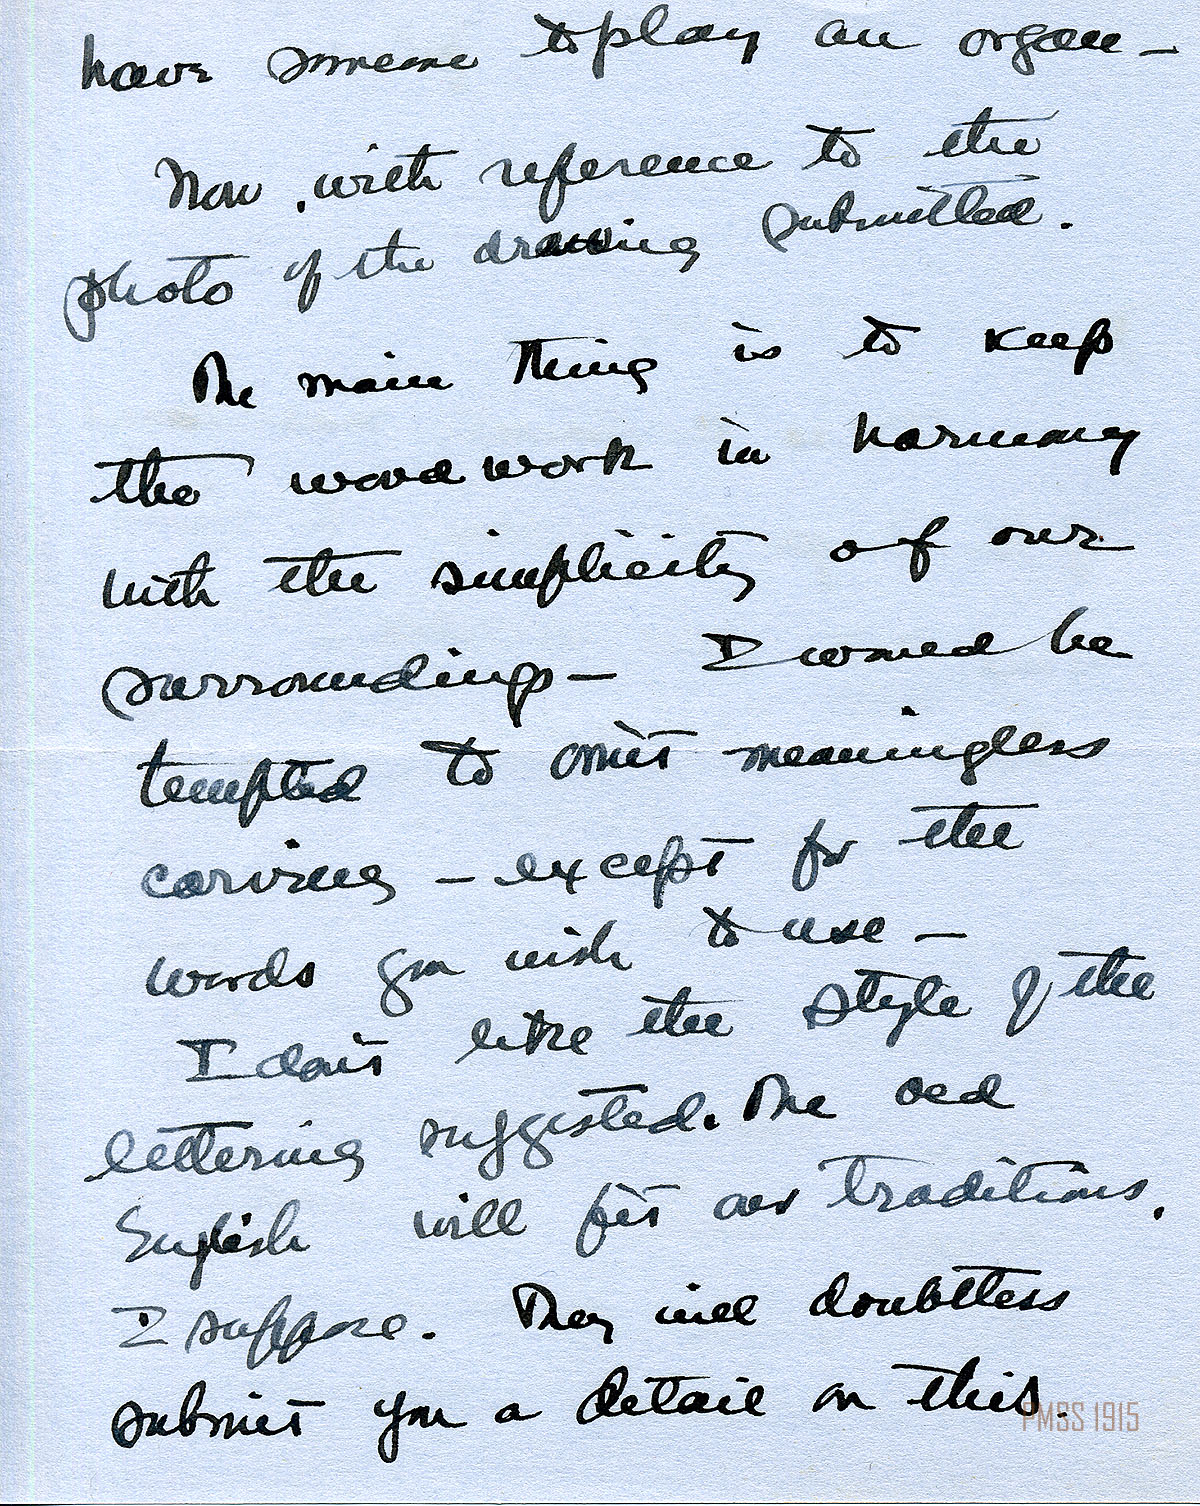 have someone to play an organ –
Now, with reference to the
photo of the drawing submitted.
The main thing is to keep
the woodwork in harmony
with the simplicity of our
surroundings – I would be
tempted to omit meaningless
carving – except for the
words you wish to use –
I don't like the style of the
lettering suggested. The old
English will fit our traditions,
I suppose. They will doubtless
submit you a detail on this.
PMSS 1915